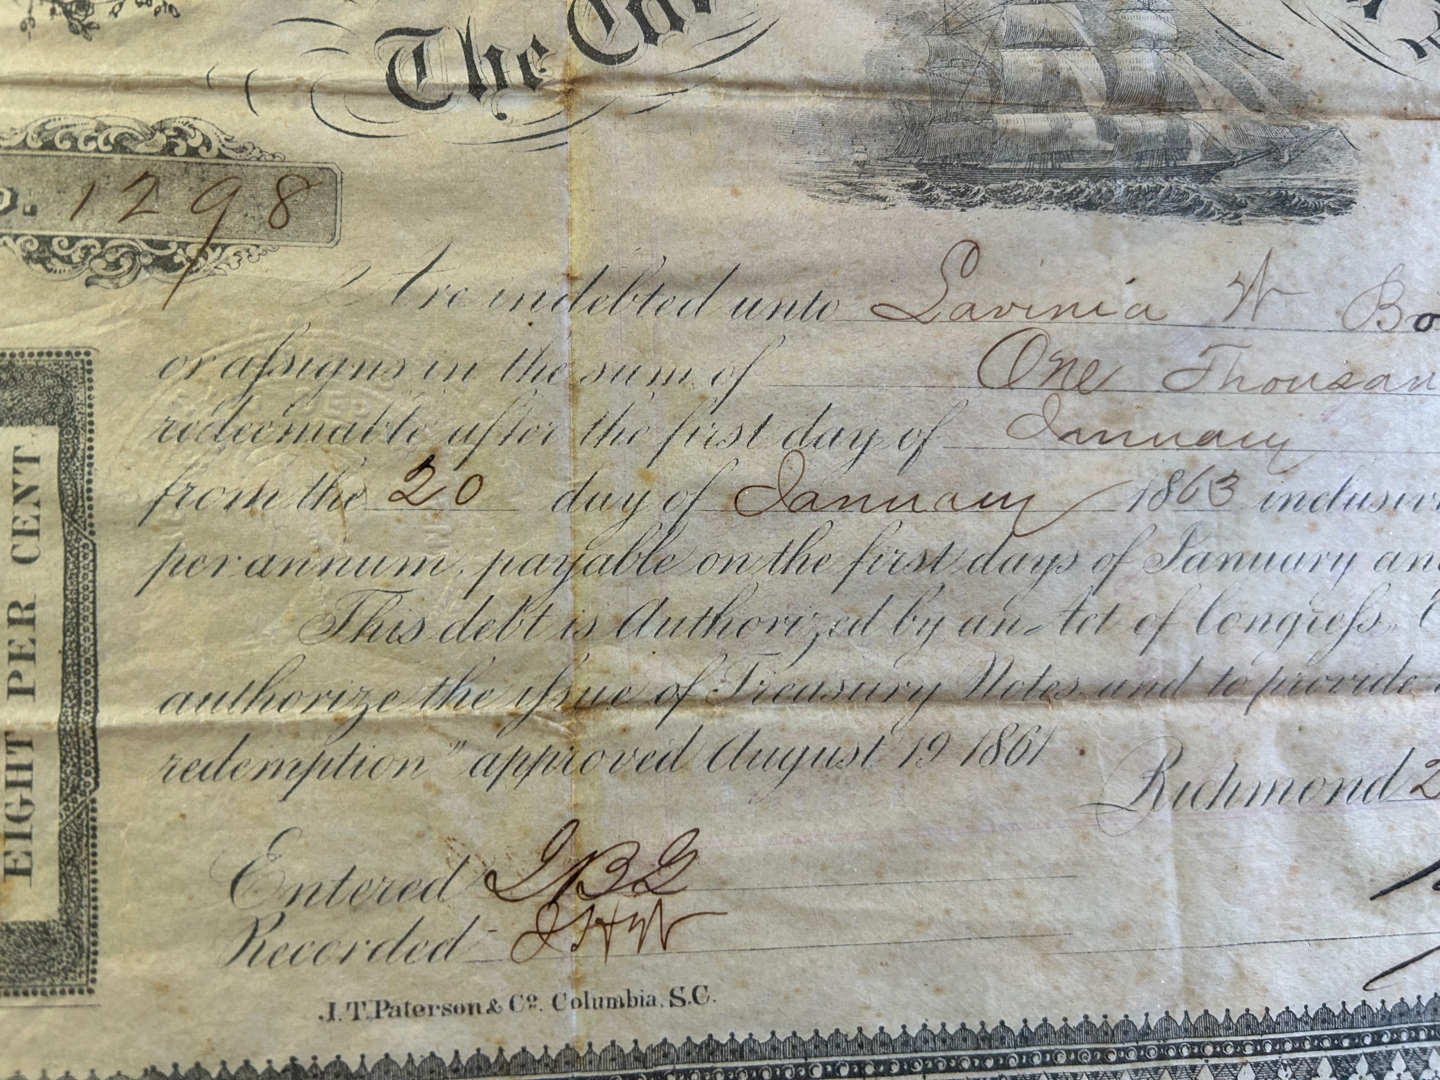 The
No. 1298
Are indebted unto Lavinia W Bo
or assigns in the sum of One Thousan
redeemable after the first day of January
from the 20 day of January 1863 inclusiv
per annum, payable on the first days of January an
This debt is Authorized by an Act of Congress.
authorize the issue of Treasury Notes and to provide
redemption" approved August 19 1861
Richmond 2
EIGHT PER CENT
Entered JBG
Recorded JHW
J.T. Paterson & Co. Columbia, S.C.